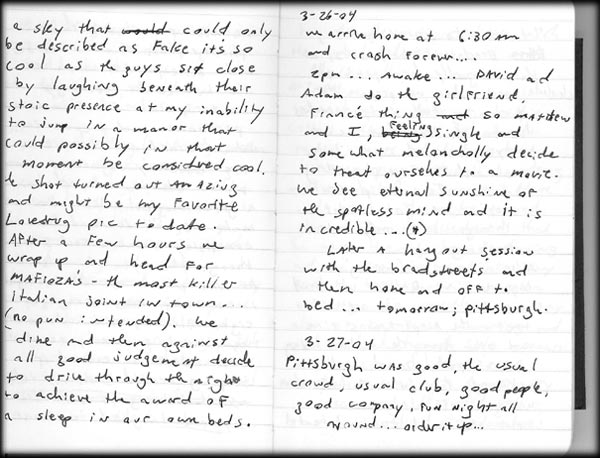 a sky that would could only
be described as Fake its so
cool as the guys sit close
by laughing beneath their
stoic presence at my inability
to jump in a manor that
could possibly in that
moment be considered cool.
the shot turned out amazing
and might be my favorite
Lovedrug pic to date.
After a few hours we
wrap up and head for
MAFIOZA'S - the most killer
italian joint in town...
(no pun intended). We
dine and then against
all good judgement decide
to drive through the night
to achieve the award of
a sleep in our own beds.
3-26-04
we arrive home at 6:30 am
and crash forever....
2pm... Awake... DAVID ad
Adam do the girlfriend,
Fiancé thing and so matthew
and I, being Feeling single and
somewhat melancholly decide
to treat ourselves to a movie.
we see eternal sunshine of
the spotless mind and it is
incredible...(*)
Later a hangout session
with the bradstreets and
then home and off to
bed... tomorrow; pittsburgh.
3-27-04
Pittsburgh was good, the usual
crowd, usual club, good people,
good company, fun night all
around... order it up...